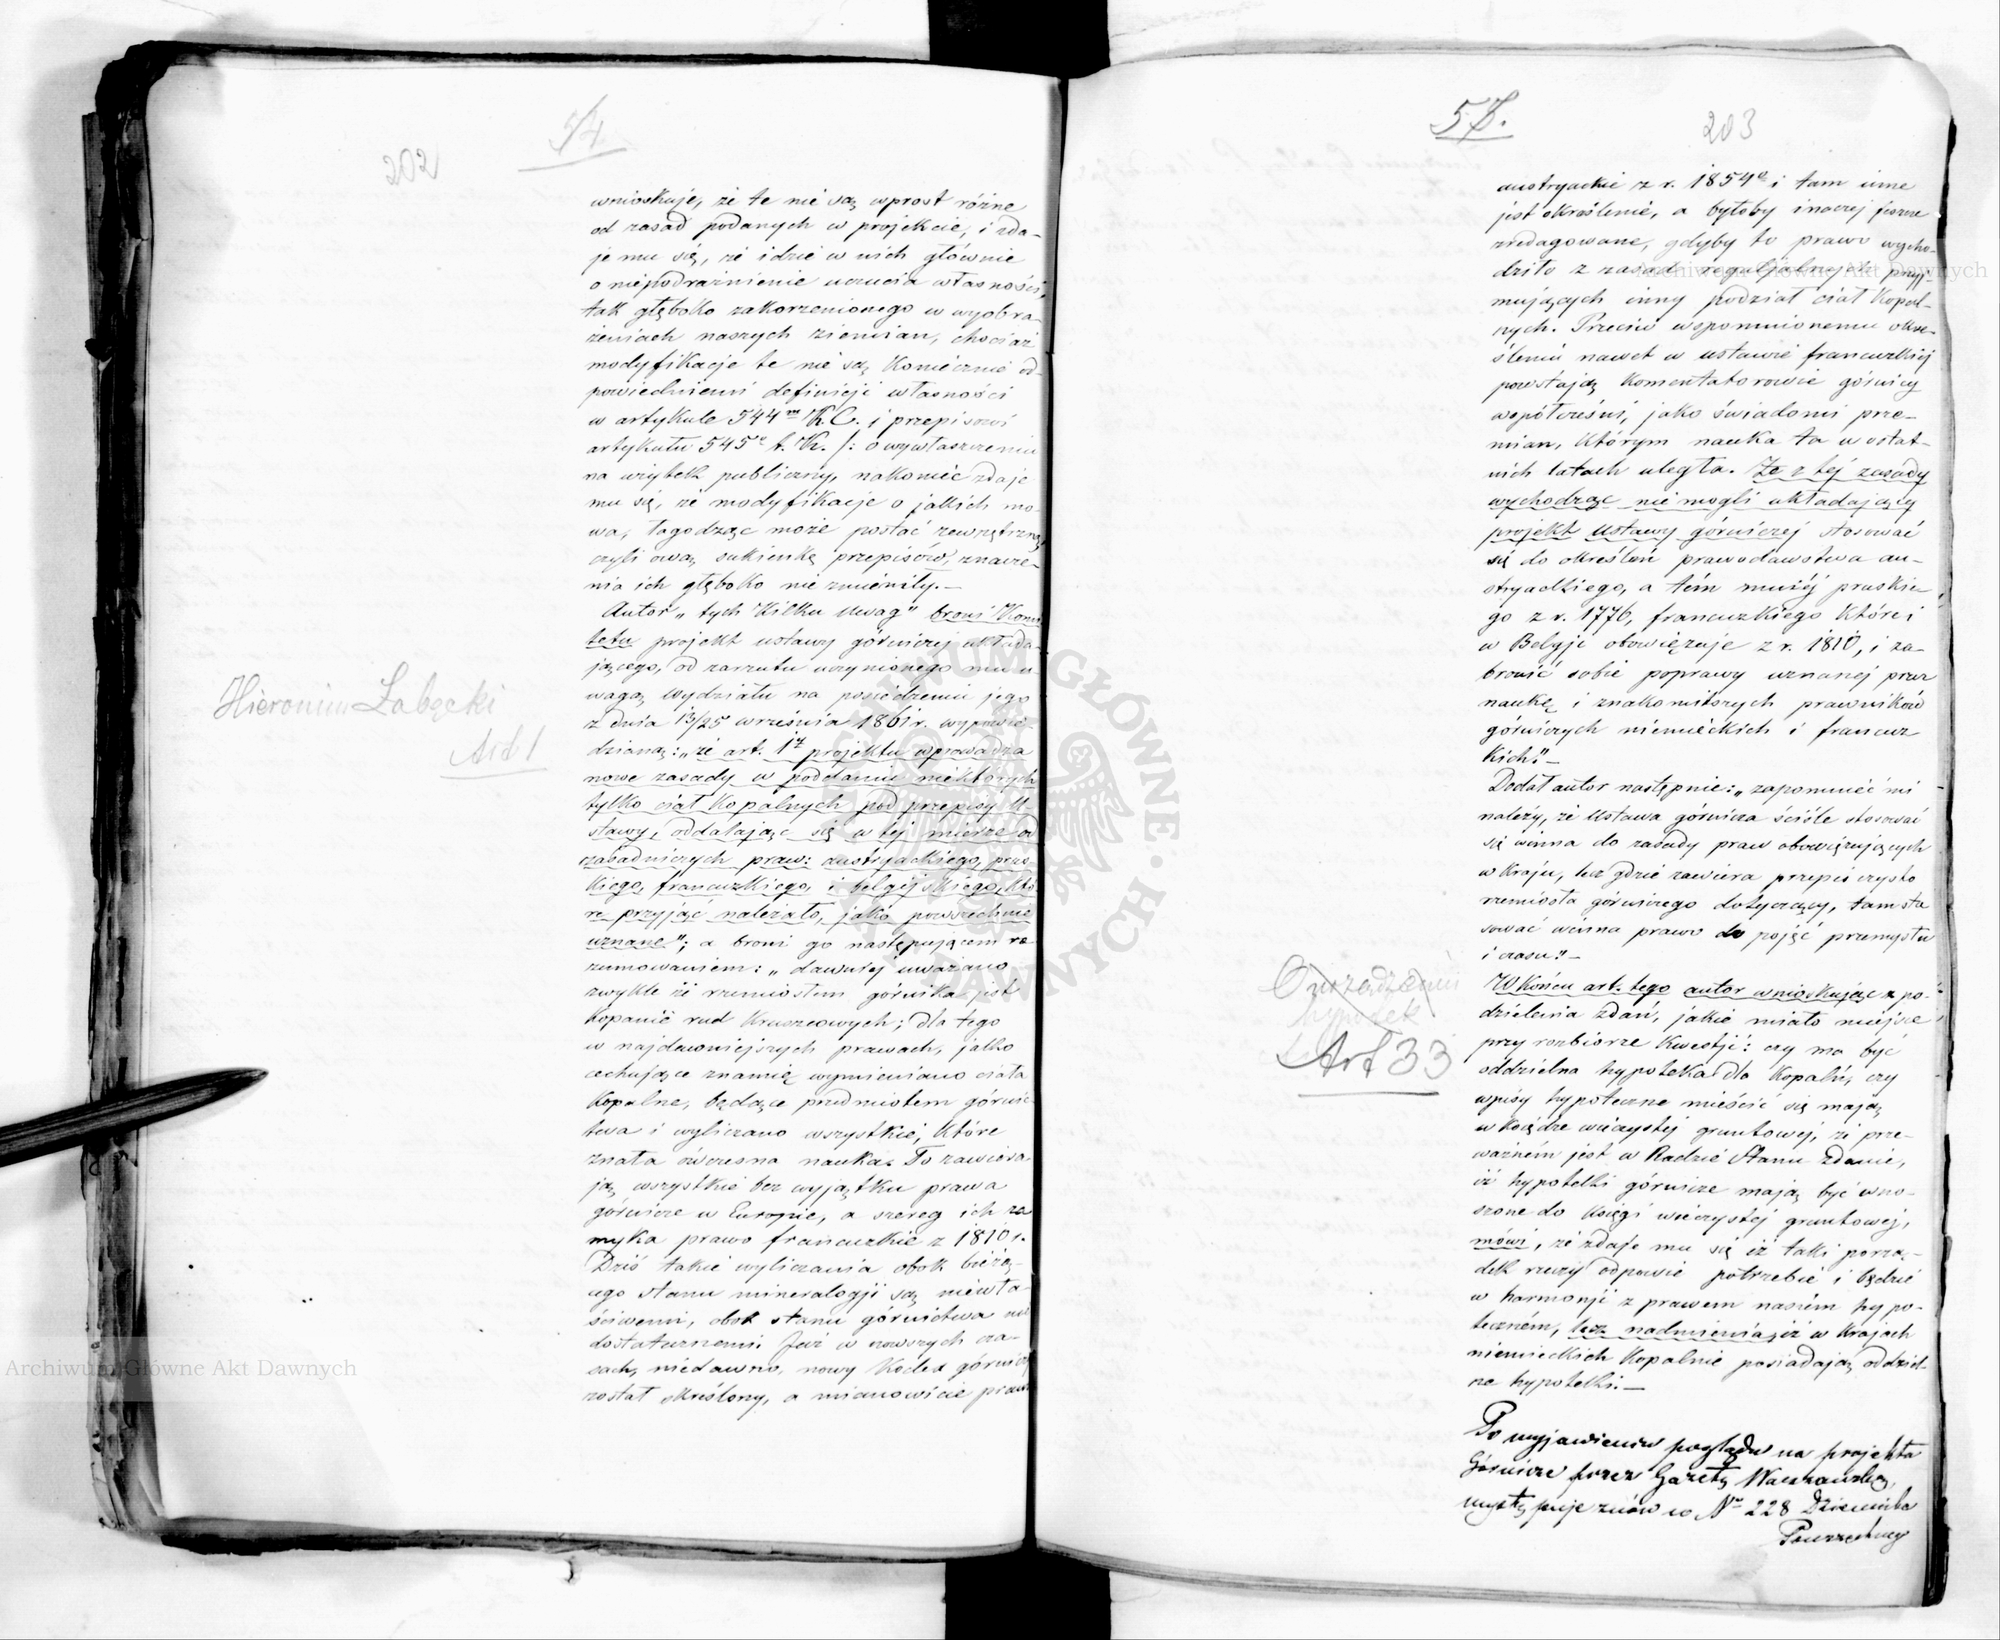 202
54.
wnioskuje, że te nie są wprost różne
od zasad podanych w projekcie, i zda-
je mu się, że idzie w nich głównie
o niepodrażnienie uczucia własności,
tak głęboko zakorzenionego w wyobra-
żeniach naszych ziemian, chociaż
modyfikacje te nie są koniecznie od-
powiedniemi definicji własności
w artykule 544 m K.C. i przepisowi
artykułu 545 t. K. /: o wywłaszczeniu
na użytek publiczny, nakoniec zdaje
mu się, że modyfikacje o jakich mo-
wa, łagodząc może postać zewnętrzną
czyli ową sukienkę przepisów, znacze-
nia ich głęboko nie zmieniły. —
Autor „tych Kilku Uwag" broni Komi
tetu projekt ustawy górniczej układa-
jącego, od zarzutu uczynionego mu u-
wagą Wydziału na posiedzeniu jego
z dnia 13/25 września 1861 r. wypowie-
dzianą: „że art. 1y projektu wprowadza
nowe zasady w poddaniu niektórych
tylko ciał kopalnych pod przepisy U-
stawy, oddalając się w tej mierze od
zasadniczych praw: austryackiego, prus-
kiego, francuzkiego, i belgijskiego, któ-
re przyjąć należało, jako powszechnie
uznane"; a broni go następującem ro-
zumowaniem: „dawniej uważano
zwykle że rzemiosłem górnika jest
kopanie rud kruszcowych; dla tego
w najdawniejszych prawach, jako
cechujące znamię wymieniano ciała
kopalne, będące przedmiotem górnic-
twa i wyliczano wszystkie, które
znała ówczesna nauka. To zawiera-
ją wszystkie bez wyjątku prawa
górnicze w Europie, a szereg ich za
myka prawo francuzkie z 1810 r.
Dziś takie wyliczania obok bieżą-
cego stanu mineralogji są niewła-
ściwemi, obok stanu górnictwa nie
dostatecznemi. Już w nowszych cza-
sach, niedawno, nowy Kodex górniczy
został określony, a mianowicie prawo
Hieronim Łabęcki
Art 1
203
austryackie z r. 1854 i tam inne
jest określenie, a byłoby inaczej jeszcze
zredagowane, gdyby to prawo wycho-
dziło z zasad regaljalnych przyj-
mujących inny podział ciał kopal-
nych. Przeciw wspomnionemu okre-
śleniu nawet w ustawie francuzkiej
powstają komentatorowie górniczy
współcześni, jako świadomi prze-
mian, którym nauka ta w ostat-
nich latach uległa. Że z tej zasady
wychodząc nie mogli układający
projekt ustawy górniczej stosować
się do określeń prawodawstwa au-
stryackiego, a tém mniéj pruskie-
go z r. 1776, francuzkiego które i
w Belgji obowiązuje z r. 1810, i za-
bronić sobie poprawy uznanej przez
naukę i znakomitszych prawników
górniczych niemieckich i francuz
kich". —
Dodał autor następnie: „zapomnieć nie
należy, że Ustawa górnicza ściśle stosować
się winna do zasady praw obowiązujących
w Kraju, lecz gdzie zawiera przepis czysto
rzemiosła górniczego dotyczący, tam sto
sować winna prawo do pojęć przemysłu
i czasu." —
W Końcu art. tego autor wnioskując z po-
dzielenia zdań, jakie miało miejsce
przy rozbiorze kwestji: czy ma być
oddzielna hypoteka dla kopalń, czy
wpisy hypoteczne mieścić się mają
w księdze wieczystej gruntowej, że prze-
ważném jest w Radzie Stanu zdanie,
iż hypoteki górnicze mają być wno-
szone do księgi wieczystéj gruntowej,
mówi, że zdaje mu się iż taki porzą-
dek rzeczy odpowie potrzebie i będzie
w harmonji z prawem naszém hypo-
teczném, lecz nadmienia, iż w Krajach
niemieckich kopalnie posiadają oddziel-
ne hypoteki. —
O urządzeniu
hypotek
Art 33
Po wyjawieniu poglądu na projekta
Górnicze przez Gazetę Warszawską,
występuje znów w No 228 Dziennika
Powszechny
ARCHIWUM GŁÓWNE AKT DAWNYCH
Archiwum Główne Akt Dawnych
Archiwum Główne Akt Dawnych